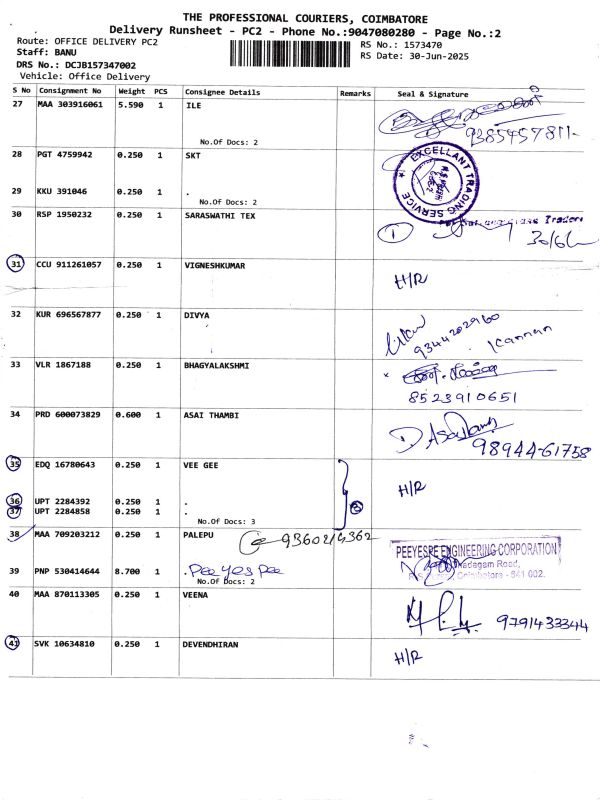 THE PROFESSIONAL COURIERS, COIMBATORE
Delivery Runsheet - PC2 - Phone No.:9047080280 - Page No.:2
Route: OFFICE DELIVERY PC2
RS No.: 1573470
Staff: BANU
RS Date: 30-Jun-2025
DRS No.: DCJB157347002
Vehicle: Office Delivery
S No Consignment No Weight PCS Consignee Details Remarks Seal & Signature
27 MAA 303916061 5.590 1 ILE
No.Of Docs: 2
9385457811-
28 PGT 4759942 0.250 1 SKT
EXCELLANT TRADING SERVICE
29 KKU 391046 0.250 1 .
No.Of Docs: 2
30 RSP 1950232 0.250 1 SARASWATHI TEX
1
30/6/
31 CCU 911261057 0.250 1 VIGNESHKUMAR
H/R
32 KUR 696567877 0.250 1 DIVYA
9344202960
Kannan
33 VLR 1867188 0.250 1 BHAGYALAKSHMI
8523910651
34 PRD 600073829 0.600 1 ASAI THAMBI
98944-61758
35 EDQ 16780643 0.250 1 VEE GEE
H/R
36 UPT 2284392 0.250 1 .
37 UPT 2284858 0.250 1 .
3
No.Of Docs: 3
38 MAA 709203212 0.250 1 PALEPU
PEEYESPE ENGINEERING CORPORATION
Coimbatore - 641 002.
39 PNP 530414644 8.700 1 . Pee yes Pee
No.Of Docs: 2
40 MAA 870113305 0.250 1 VEENA
9791433344
41 SVK 10634810 0.250 1 DEVENDHIRAN
H/R